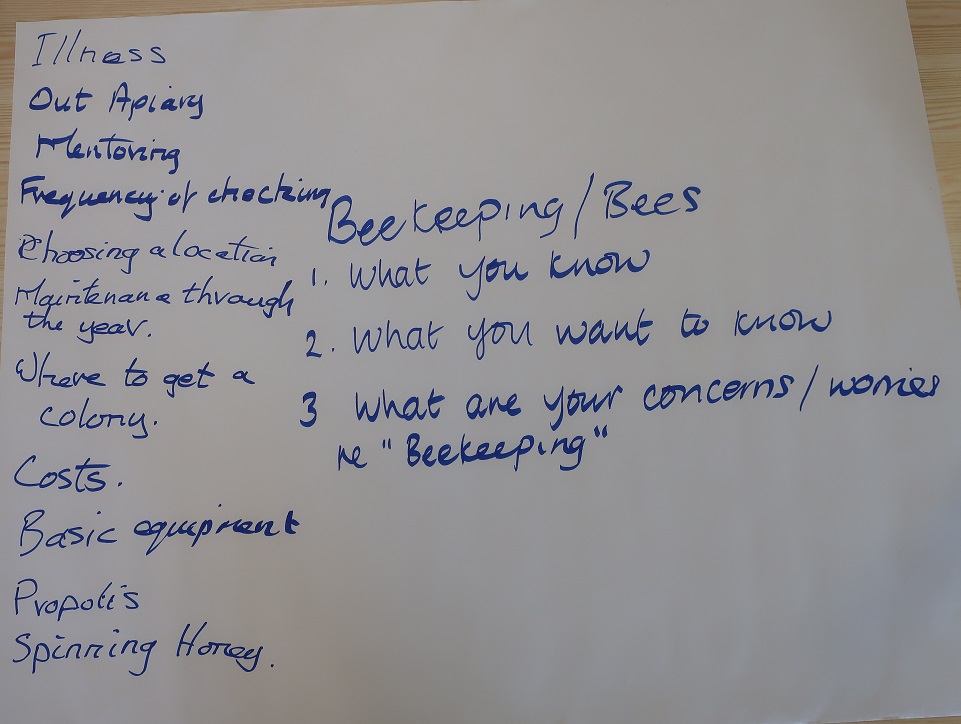 Illness
Out Apiary
Mentoring
Frequency of checking
Choosing a location
Maintenance through
the year.
Where to get a
colony.
Costs.
Basic equipment
Propolis
Spinning Honey.
Beekeeping/Bees
1. What you know
2. What you want to know
3 What are your concerns/worries
re "Beekeeping"